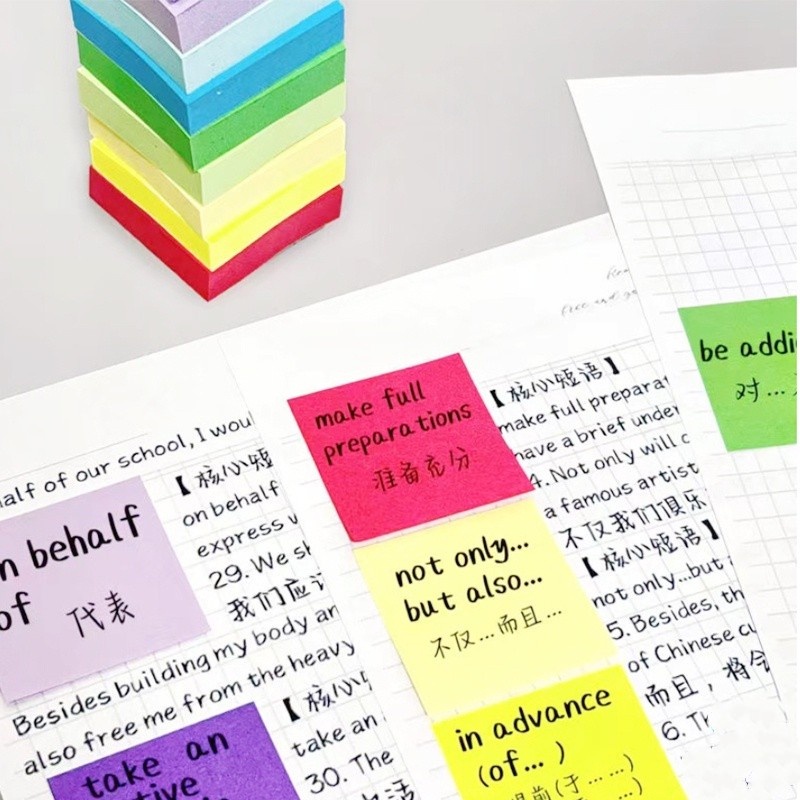 half of our school, I woul
【核心短
on behalf
express w
29. We sh
我们应该
n behalf
of 代表
Besides building my body an
also free me from the heavy
【核心短
take an
30. The
take an
tive
make full
preparations
准备充分
not only...
but also...
不仅...而且...
in advance
(of...)
提前(于......)
【核心短语】
make full preparat
have a brief under
4. Not only will o
a famous artist
不仅我们俱乐
【核心短语】
not only...but
5. Besides, th
of Chinese cu
而且，将令
6. Th
be addi
对...